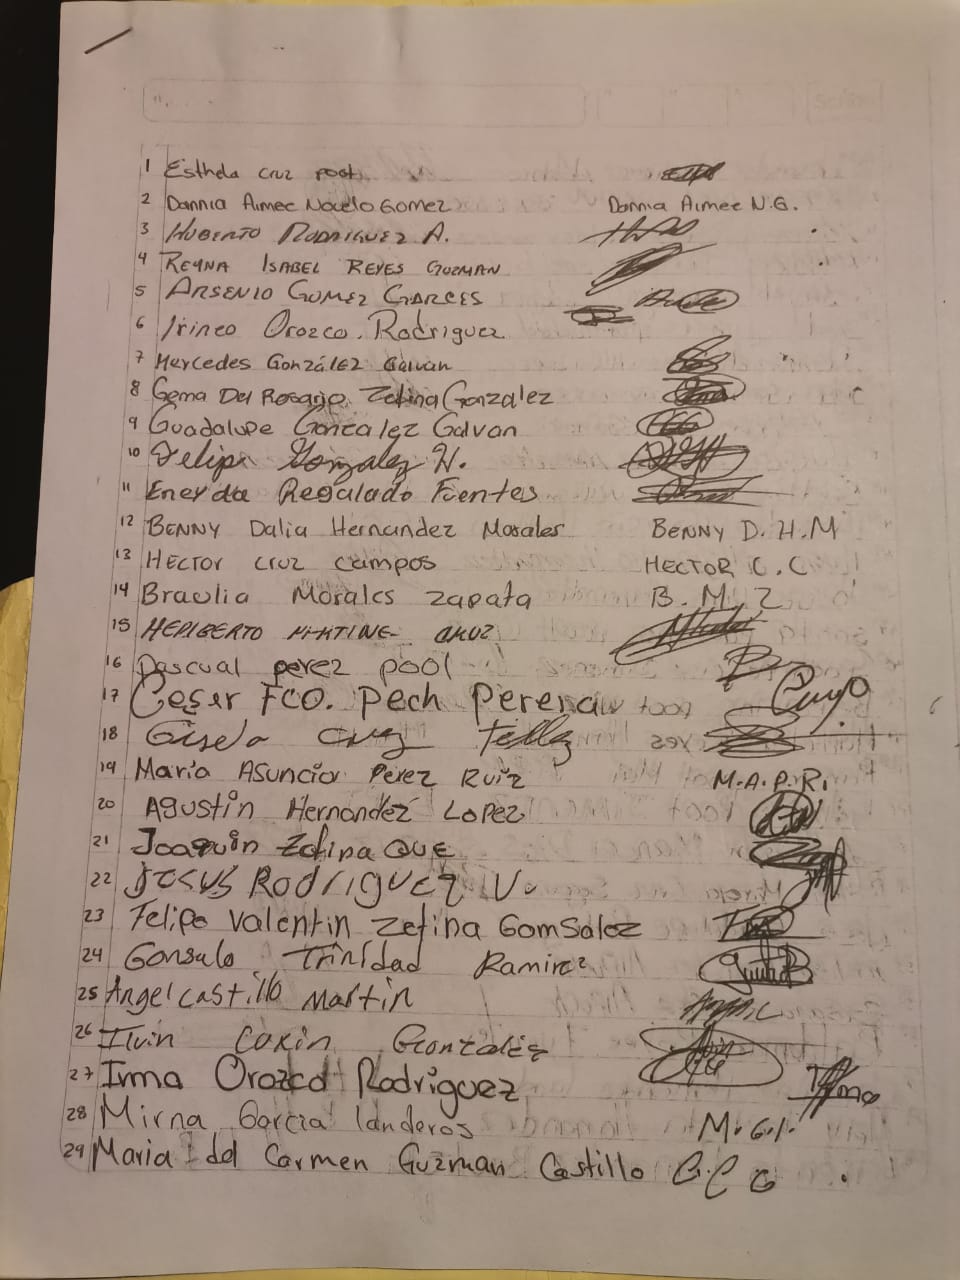 1 Esthela cruz poot
2 Dannia Aimee Novelo Gomez Dannia Aimee N.G.
3 HUBERTO RODRIGUEZ A.
4 REYNA ISABEL REYES GUZMAN
5 ARSENIO GOMEZ GARCES
6 Irineo Orozco. Rodriguez
7 Mercedes González Galvan
8 Gema Del Rosario Zetina Gonzalez
9 Guadalupe Gonzalez Galvan
10 Felipe Gonzalez H.
11 Eneyda Regalado Fuentes
12 BENNY Dalia Hernandez Morales BENNY D. H. M
13 HECTOR cruz campos HECTOR C. C
14 Braulia Morales zapata B. M. Z
15 HERIBERTO
16 Pascual perez pool
17 Cesar Fco. Pech Perera
18 Gisela cruz Tellez
19 Maria ASUNCION Perez RUIZ M.A.P.R.
20 Agustin Hernandez Lopez
21 Joaquin Zetina QUE
22 Jesus RodRigUez V.
23 Felipe Valentin Zetina GomSalez
24 Gonsalo Trinidad Ramirez
25 Angel castillo martin
26 Gonzalez
27 Irma Orozco Rodriguez Irma
28 Mirna Garcia landeros M.G.l.
29 Maria del Carmen Guzman Castillo